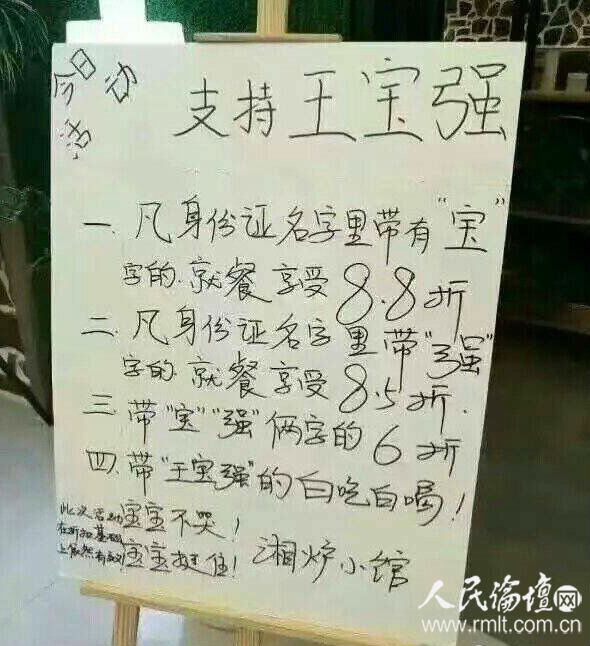 今日活动
支持王宝强
一.凡身份证名字里带有"宝"
字的.就餐享受8.8折
二.凡身份证名字里带"强"
字的就餐享受8.5折.
三.带"宝""强"俩字的6折
四.带"王宝强"的白吃白喝!
此次活动
在折扣基础
上依然有效
宝宝不哭!
宝宝挺住!
湘炉小馆
人民论坛网
www.rmlt.com.cn